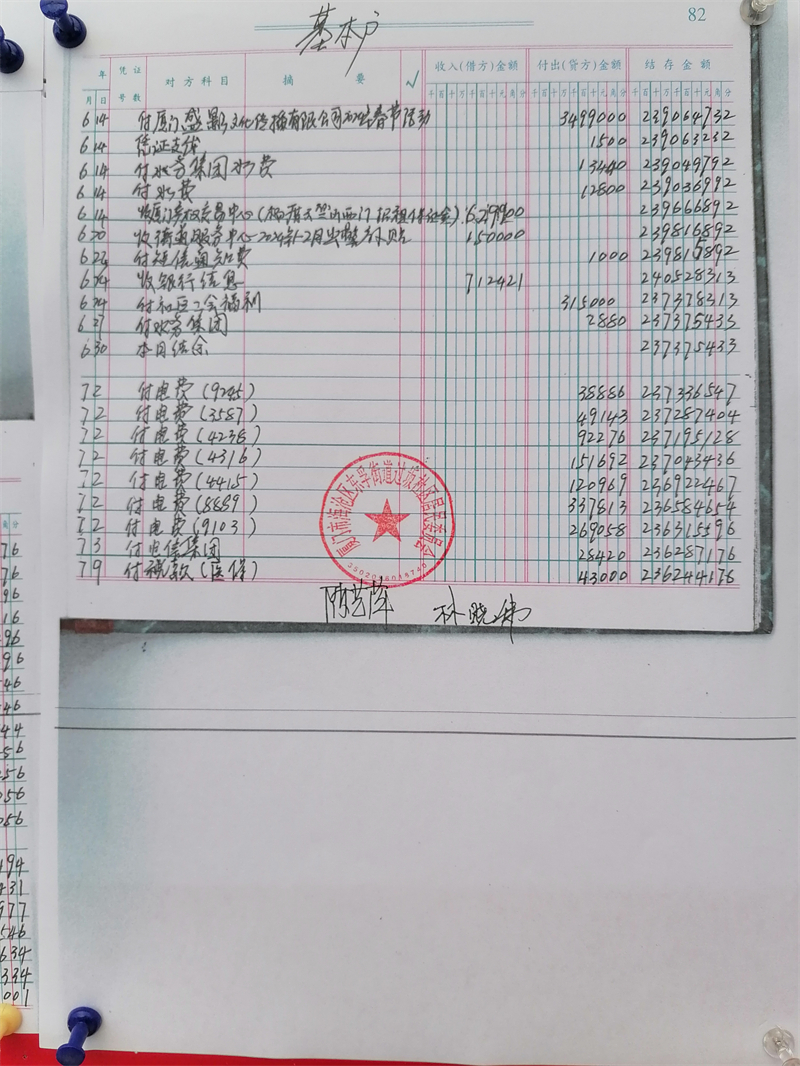 基本户
82
年 凭证 对方科目 摘要 √ 收入(借方)金额 付出(贷方)金额 结存金额
月 日 号数 千百十万千百十元角分 千百十万千百十元角分 千百十万千百十元角分
6 14 付厦门盛影文化传播有限公司2024年春节活动 3499000 239064732
6 14 凭证支付 1500 239063232
6 14 付水务集团水费 13440 239049792
6 14 付水费 12800 239036992
6 14 收厦门产权交易中心( 西门招租保证金) 629900 239666892
6 20 收街道服务中心2024年1-2月 补贴 150000 239816892
6 22 付短信通知费 1000 239815892
6 24 收银行结息 712421 240528313
6 24 付社区工会福利 315000 237378313
6 27 付水务集团 2880 237375433
6 30 本月结余 237375433
7 2 付电费(9245) 38886 237336547
7 2 付电费(3587) 49143 237287404
7 2 付电费(4238) 92276 237195128
7 2 付电费(4316) 151692 237043436
7 2 付电费(4415) 120969 236922467
7 2 付电费(8889) 337813 236584654
7 2 付电费(9103) 269058 236315596
7 3 付电信集团 28420 236287176
7 9 付税款(医保) 43000 236244176
厦门市海沧区东孚街道过坂社区居民委员会
林晓伟
角分
76
76
96
16
96
96
46
46
44
56
256
056
056
194
431
977
546
634
334
001